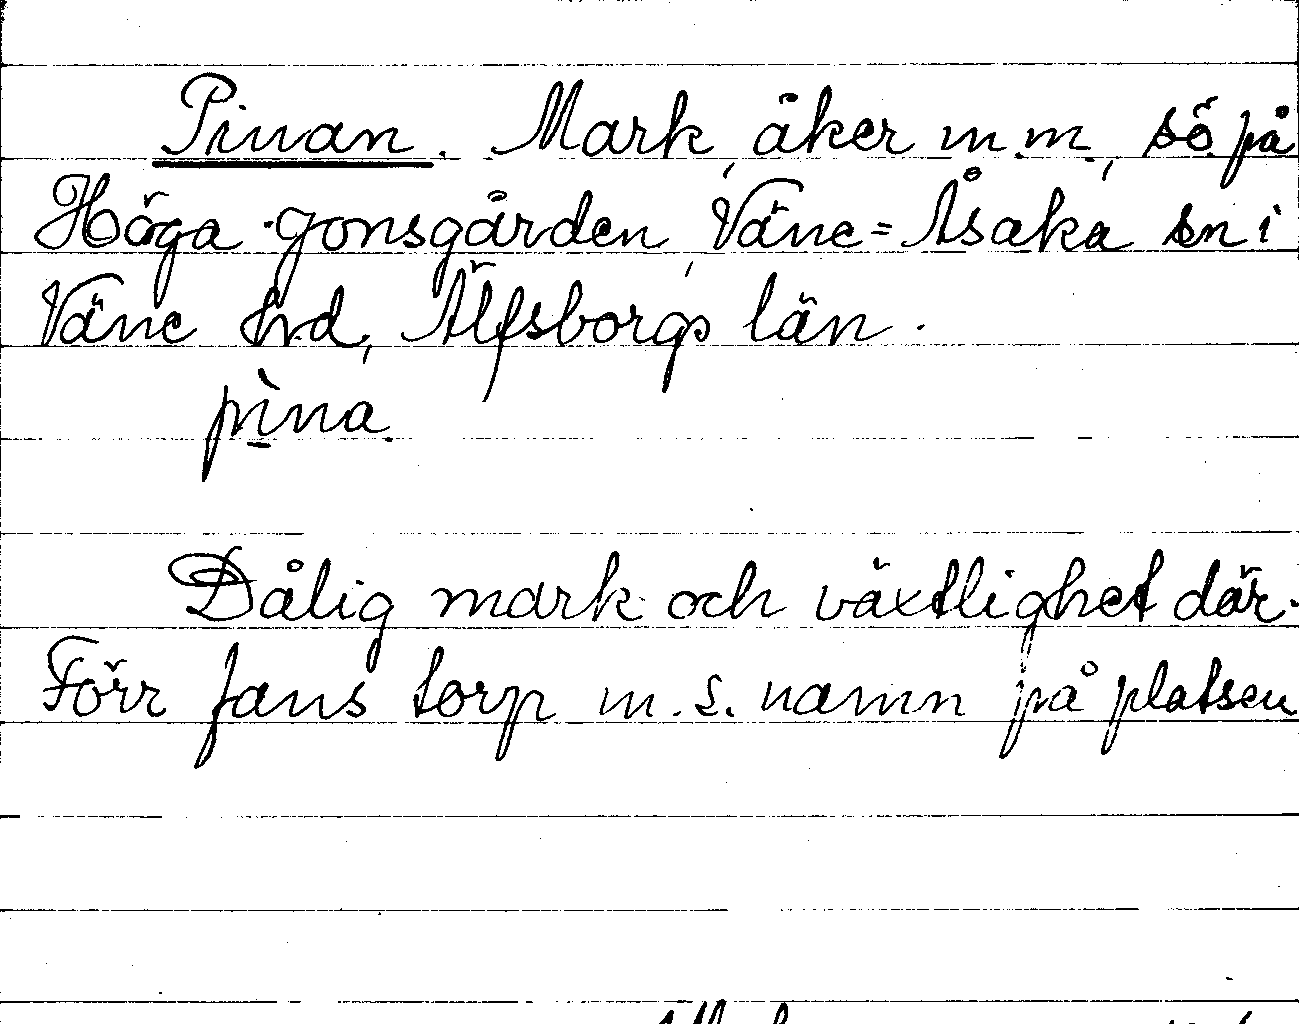 Pinan. Mark, åker m.m., sö på
Höga Jonsgården, Väne=Åsaka sn i
Väne hd, Älfsborgs län.
pìna
Dålig mark och växtlighet där.
Förr fans torp m. s. namn på platsen